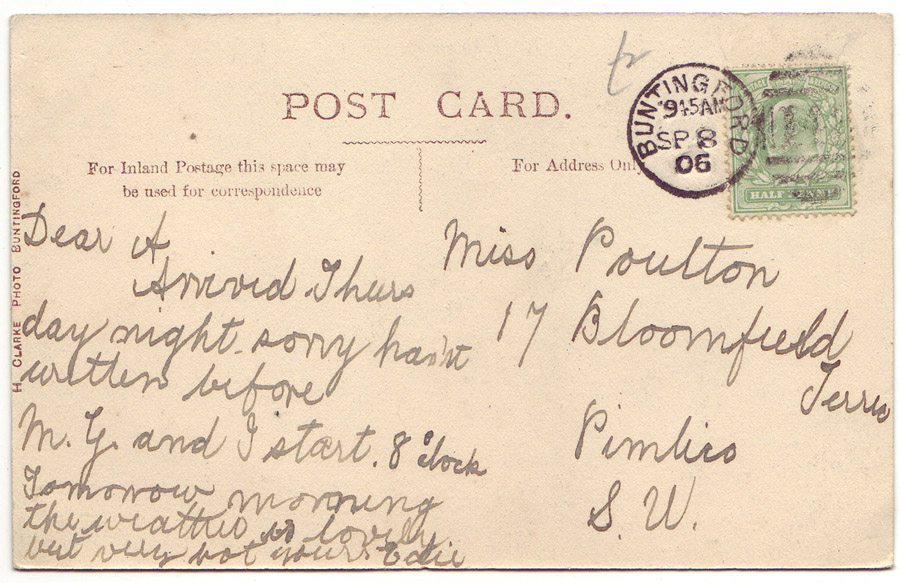 POST CARD.
For Inland Postage this space may
be used for correspondence
For Address Only
BUNTINGFORD
945AM
SP 8
06
HALF PENNY
H CLARKE PHOTO BUNTINGFORD
Dear A
Arrived Thurs
day night sorry hasnt
written before
M. G. and I start. 8 oclock
Tomorrow morning
the weather is lovely
but very hot yours Edie
Miss Poulton
17 Bloomfield
Terrce
Pimlico
S. W.